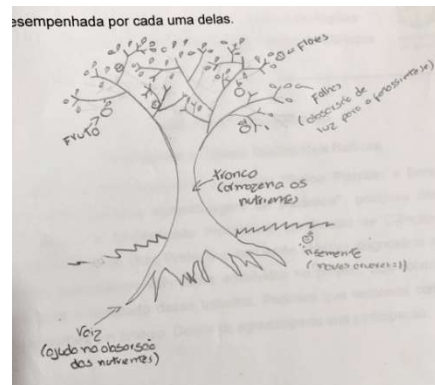 esempenhada por cada uma delas.
Flores
Folhas
(absorsão de
luz para a
Fruto
tronco
(armazena os
nutrientes)
semente
(novas
raiz
(ajuda na absorsão
dos nutrientes)